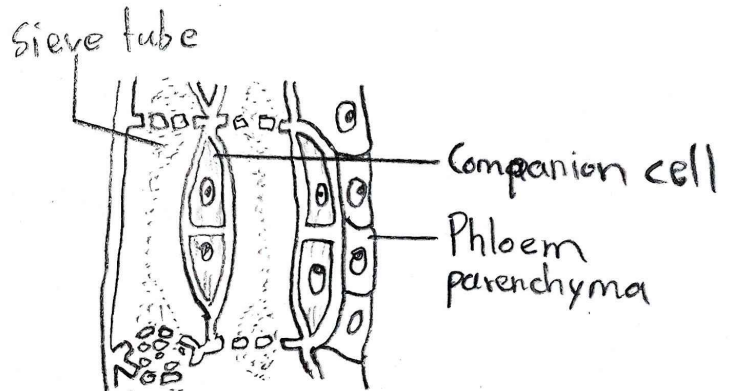 Sieve tube
Companion cell
Phloem
parenchyma